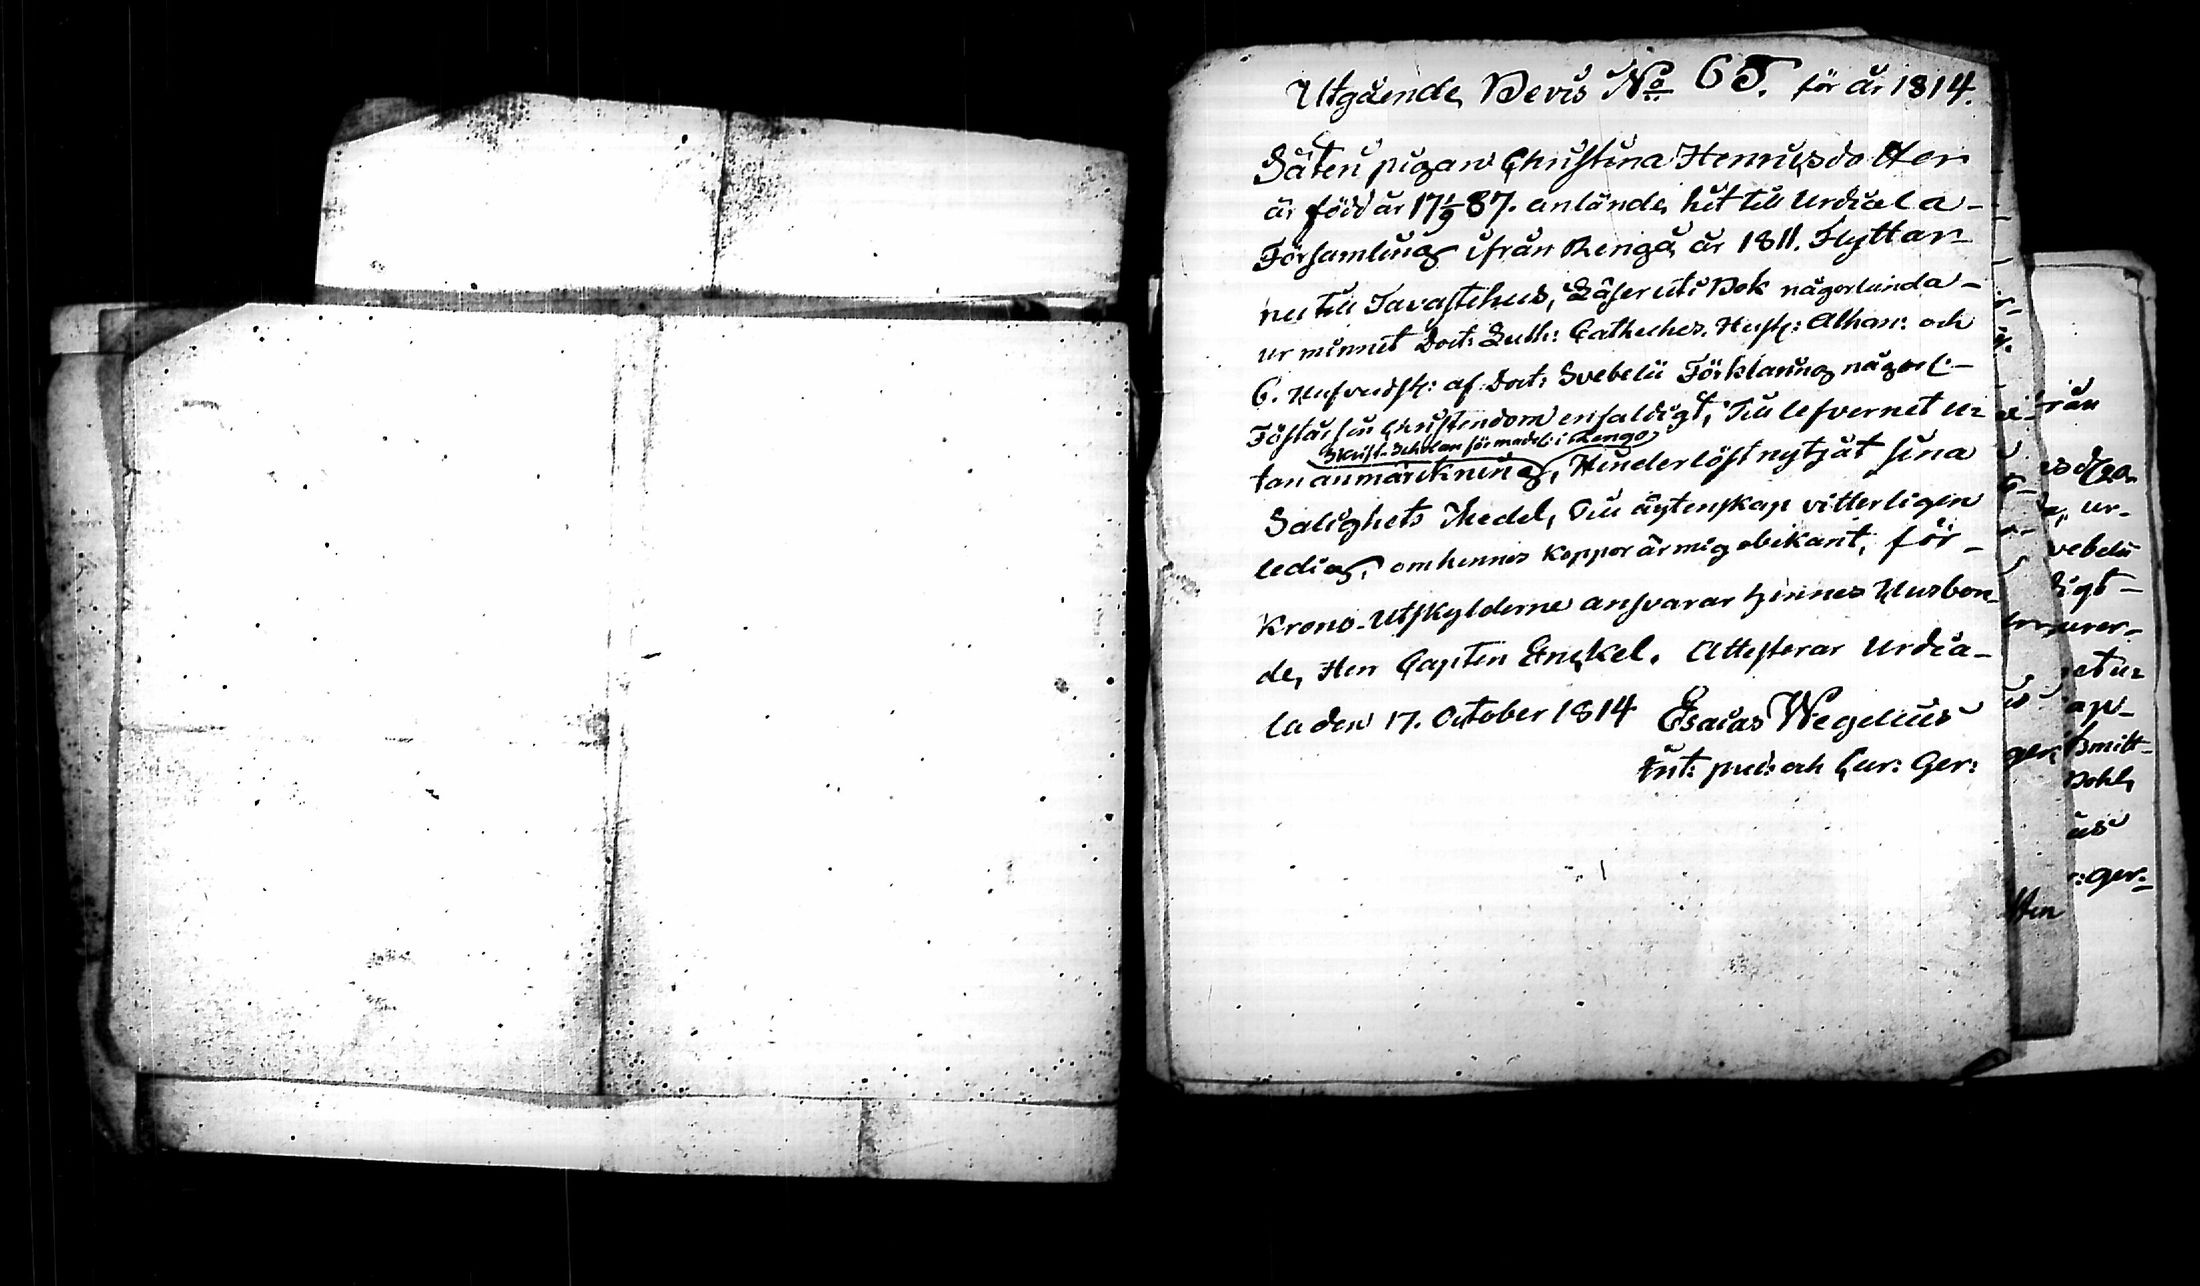 Utgående Bevis No 65. för år 1814.
Säteri pigan Christina Henricsdotter
är född år 17 1/9 87. anlände hit till Urdiala
Församling ifrån Rengå år 1811. Flyttar
nu till Tavastehus, Läser uti Bok någorlunda
ur minnet Doct: Luth: Catheches. Hust: Athan: och
6. Hufvudst: af Doct: Svebelii Förklaring någorl:
Föstår sin Christendom enfaldigt, Till lefvernet u-
Skrift-Scholan för madel: i Rengo
tan anmärckning, Hinderlöst nytjat sina
Salighets Medel, Till äktenskap vitterligen
ledig, om hennes koppor är mig obekant, för
Krono-Utskylderne ansvarar hennes Husbon-
de, Herr Capten Enckel. Attesterar Urdia-
la den 17. October 1814 Esaias Wegelius
Int: pred: och Cur: Ger:
från
ur-
vebelii
digt
net u-
ap-
Smitt-
us
r: Ger: